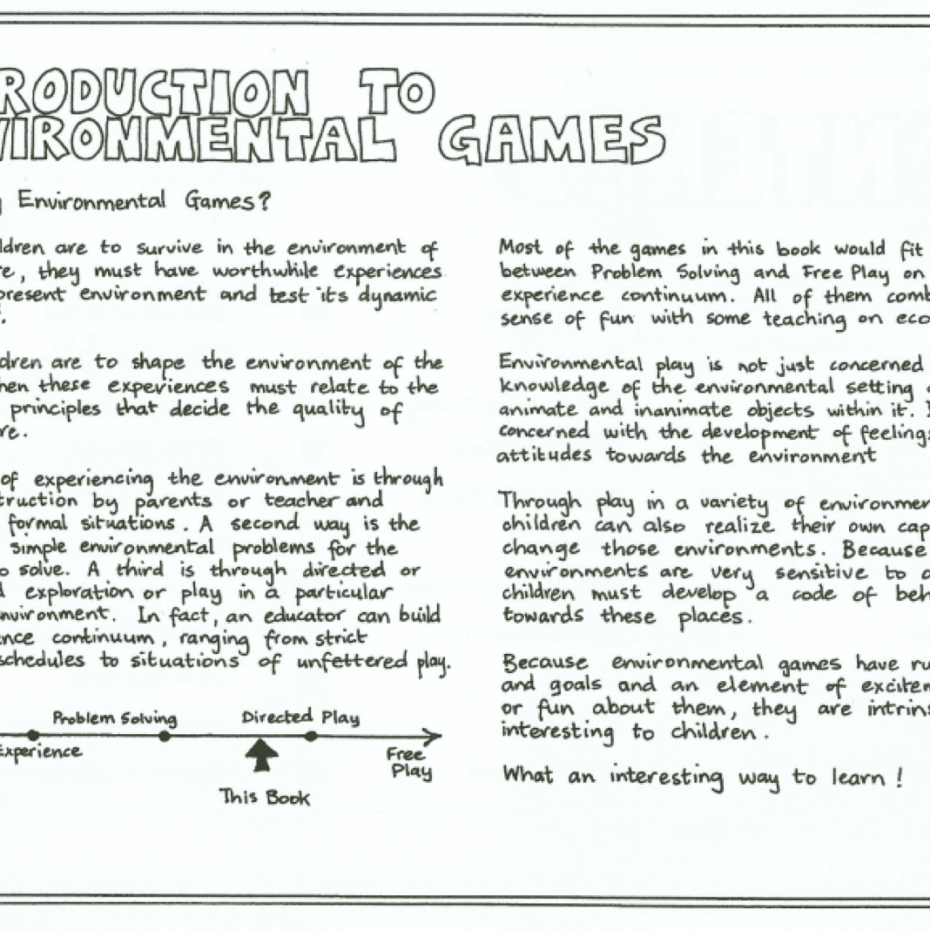 RODUCTION TO
VIRONMENTAL GAMES
Environmental Games?
ldren are to survive in the environment of
re, they must have worthwhile experiences
present environment and test it's dynamic
dren are to shape the environment of the
hen these experiences must relate to the
principles that decide the quality of
re.
of experiencing the environment is through
truction by parents or teacher and
formal situations. A second way is the
simple environmental problems for the
o solve. A third is through directed or
d exploration or play in a particular
nvironment. In fact, an educator can build
ence continuum, ranging from strict
schedules to situations of unfettered play.
Problem Solving Directed Play
Experience
Free
Play
This Book
Most of the games in this book would fit
between Problem Solving and Free Play on
experience continuum. All of them comb
sense of fun with some teaching on eco
Environmental play is not just concerned
knowledge of the environmental setting
animate and inanimate objects within it.
concerned with the development of feelings
attitudes towards the environment
Through play in a variety of environmen
children can also realize their own cap
change those environments. Because
environments are very sensitive to
children must develop a code of beh
towards these places.
Because environmental games have ru
and goals and an element of excitem
or fun about them, they are intrins
interesting to children.
What an interesting way to learn!